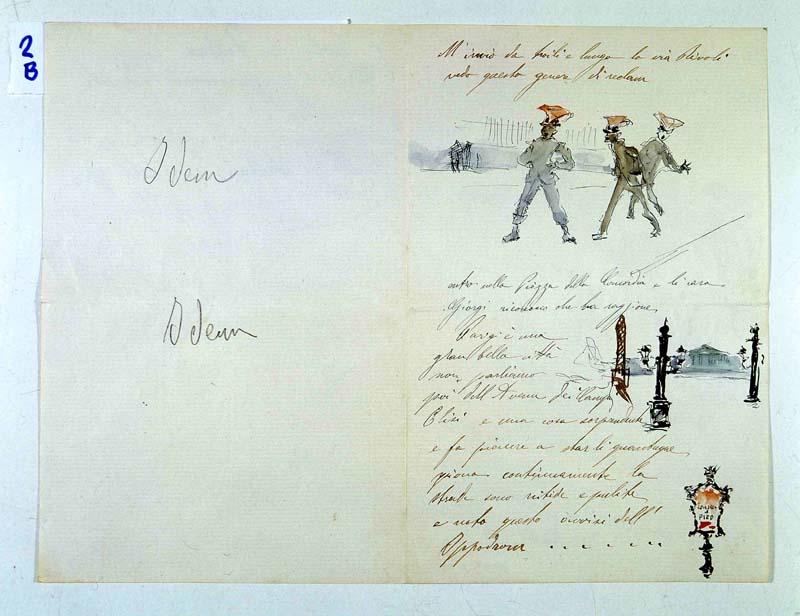 2
B
Idem
Idem
M'invio da tutti e lungo la via Rivoli
vedo questo genere di reclam
entro nella Piazza della Concordia e li cara
Giorgi riconosco che ha raggione
Parigi è una
gran bella città
non parliamo
poi dell'Avenu dei Campi
Elisi e una cosa sorprendente
e fa piacere a star li quantunque
piova continuamente le
strade sono nitide e pulite
e noto questo avviso dell'
Oppodrom